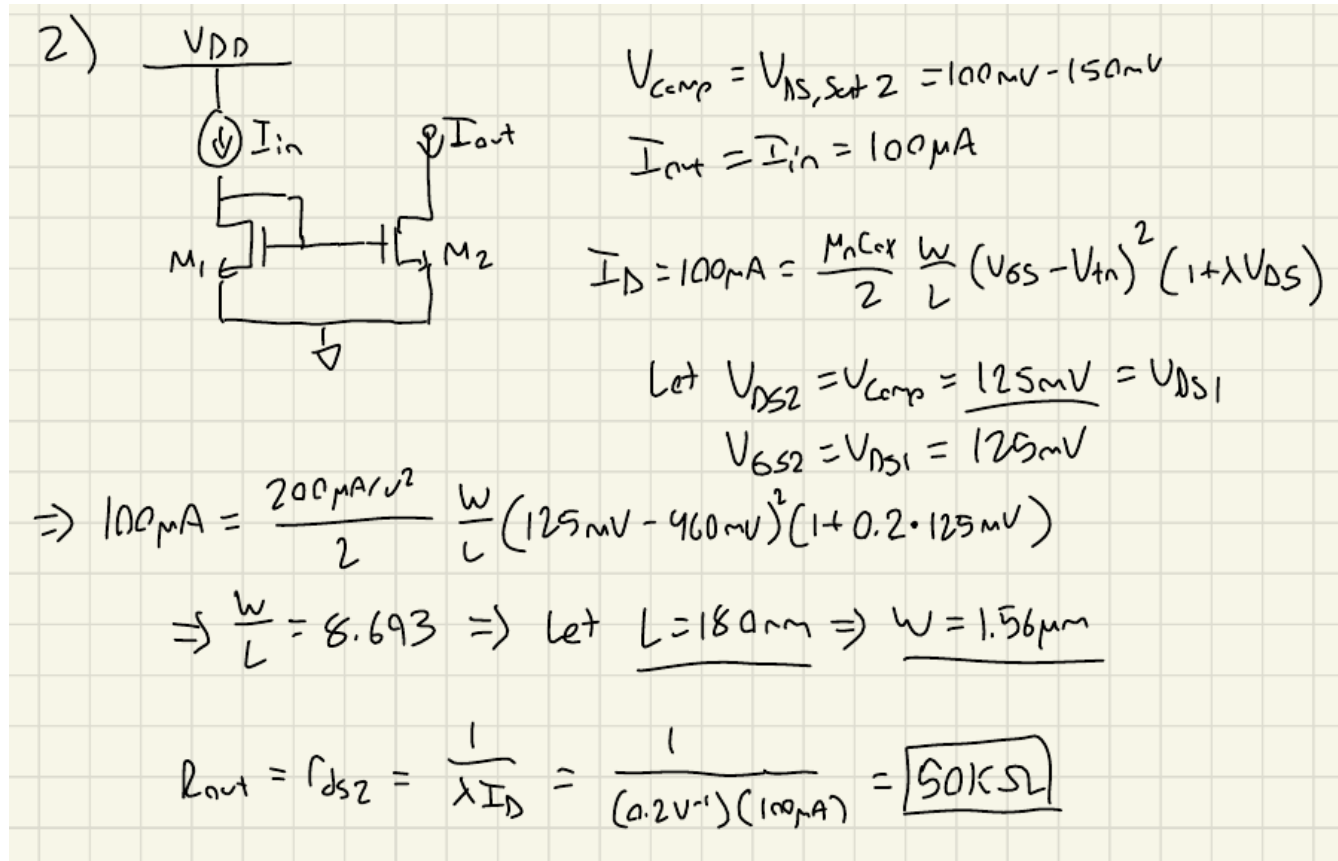 2)
VDD
Iin
Iout
M1
M2
Vcomp = VDS,Sat 2 = 100mV-150mV
Iout = Iin = 100μA
ID = 100μA = μnCox/2 W/L (VGS - Vtn)² (1+λVDS)
Let VDS2 = Vcomp = 125mV = VDS1
VGS2 = VDS1 = 125mV
⇒ 100μA = 200μA/V²/2 W/L (125mV - 460mV)² (1+ 0.2·125mV)
⇒ W/L = 8.693 ⇒ Let L=180nm ⇒ W = 1.56μm
Rout = rds2 = 1/λID = 1/(0.2V⁻¹)(100μA) = 50KΩ